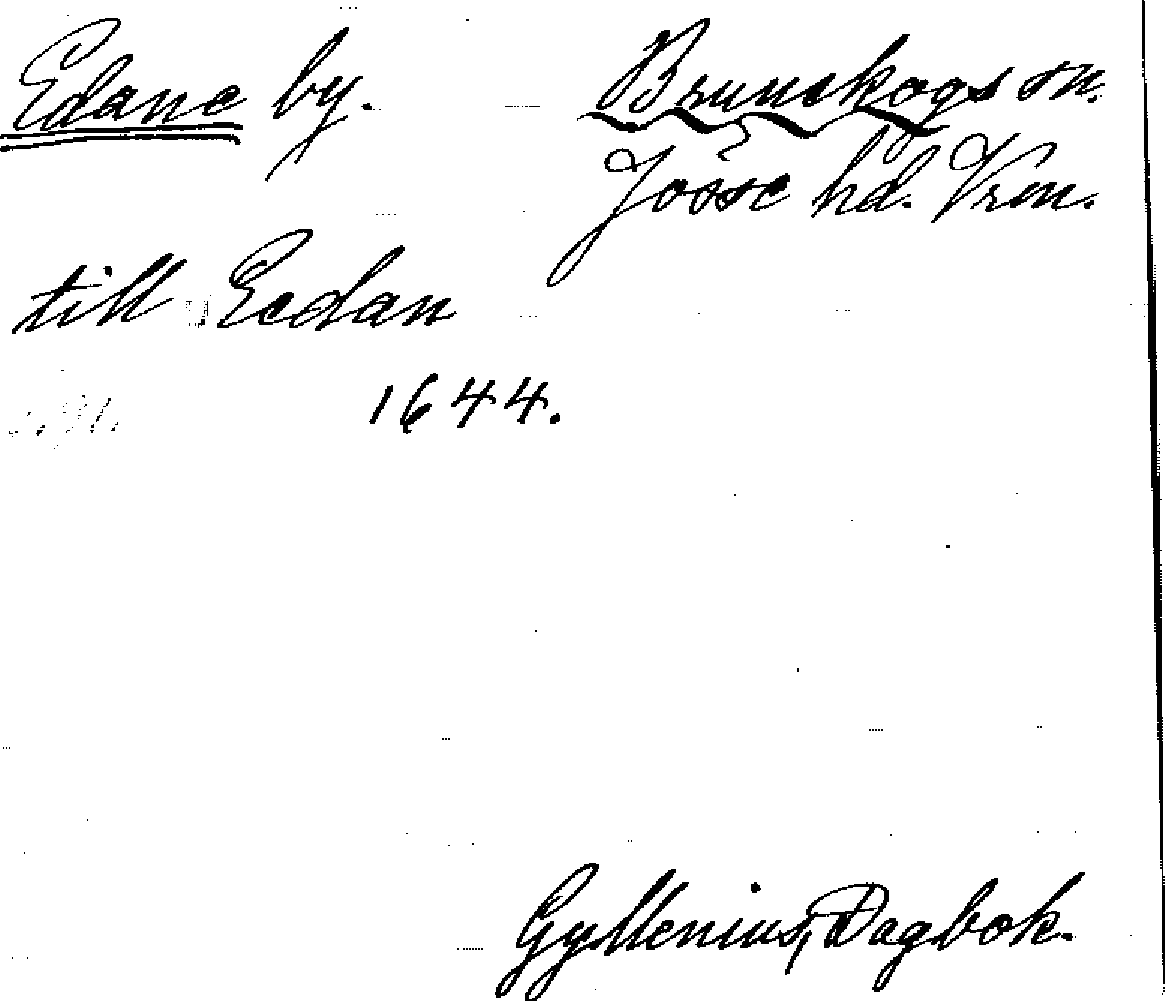 Edane by. Brunskogs sn.
Jösse hd. Vrm.
till Eedan
1644.
Gyllenius, Dagbok.